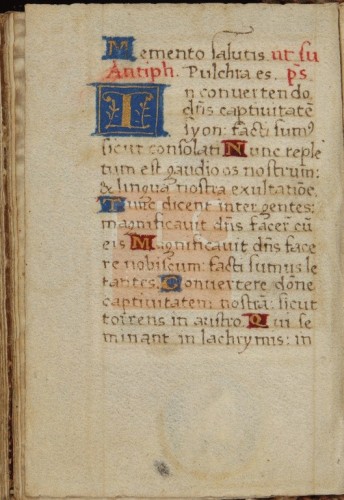 Memento salutis. ut su
Antiph. Pulchra es. ps
In convertendo
dn̄s captivitatē
syon: facti sumꝰ
sicut consolati Nunc reple
tum est gaudio os nostrum:
& lingua nostra exultatiōe.
Tunc dicent inter gentes:
magnificavit dn̄s facer cū
eis Magnificavit dn̄s face
re nobiscum: facti sumus le
tantes. Convertere dōne
captivitatem nostrā: sicut
torrens in austro. Qui se
minant in lachrymis: in